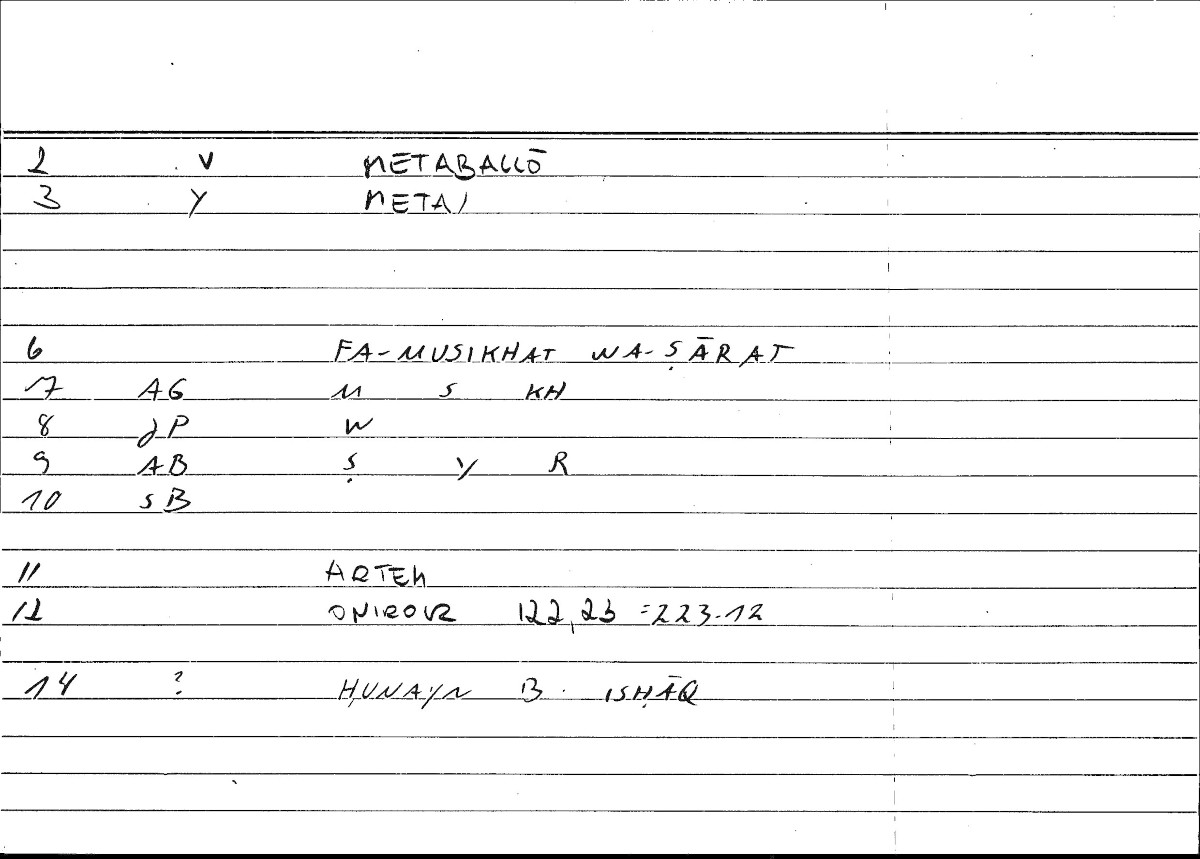 2 V METABALLŌ
3 Y META/
6 FA-MUSIKHAT WA-ṢĀRAT
7 AG M S KH
8 JP W
9 AB Ṣ Y R
10 SB
11 ARTEM
12 ONIROCR 122,23 =223.12
14 ? ḤUNAYN B. ISḤĀQ